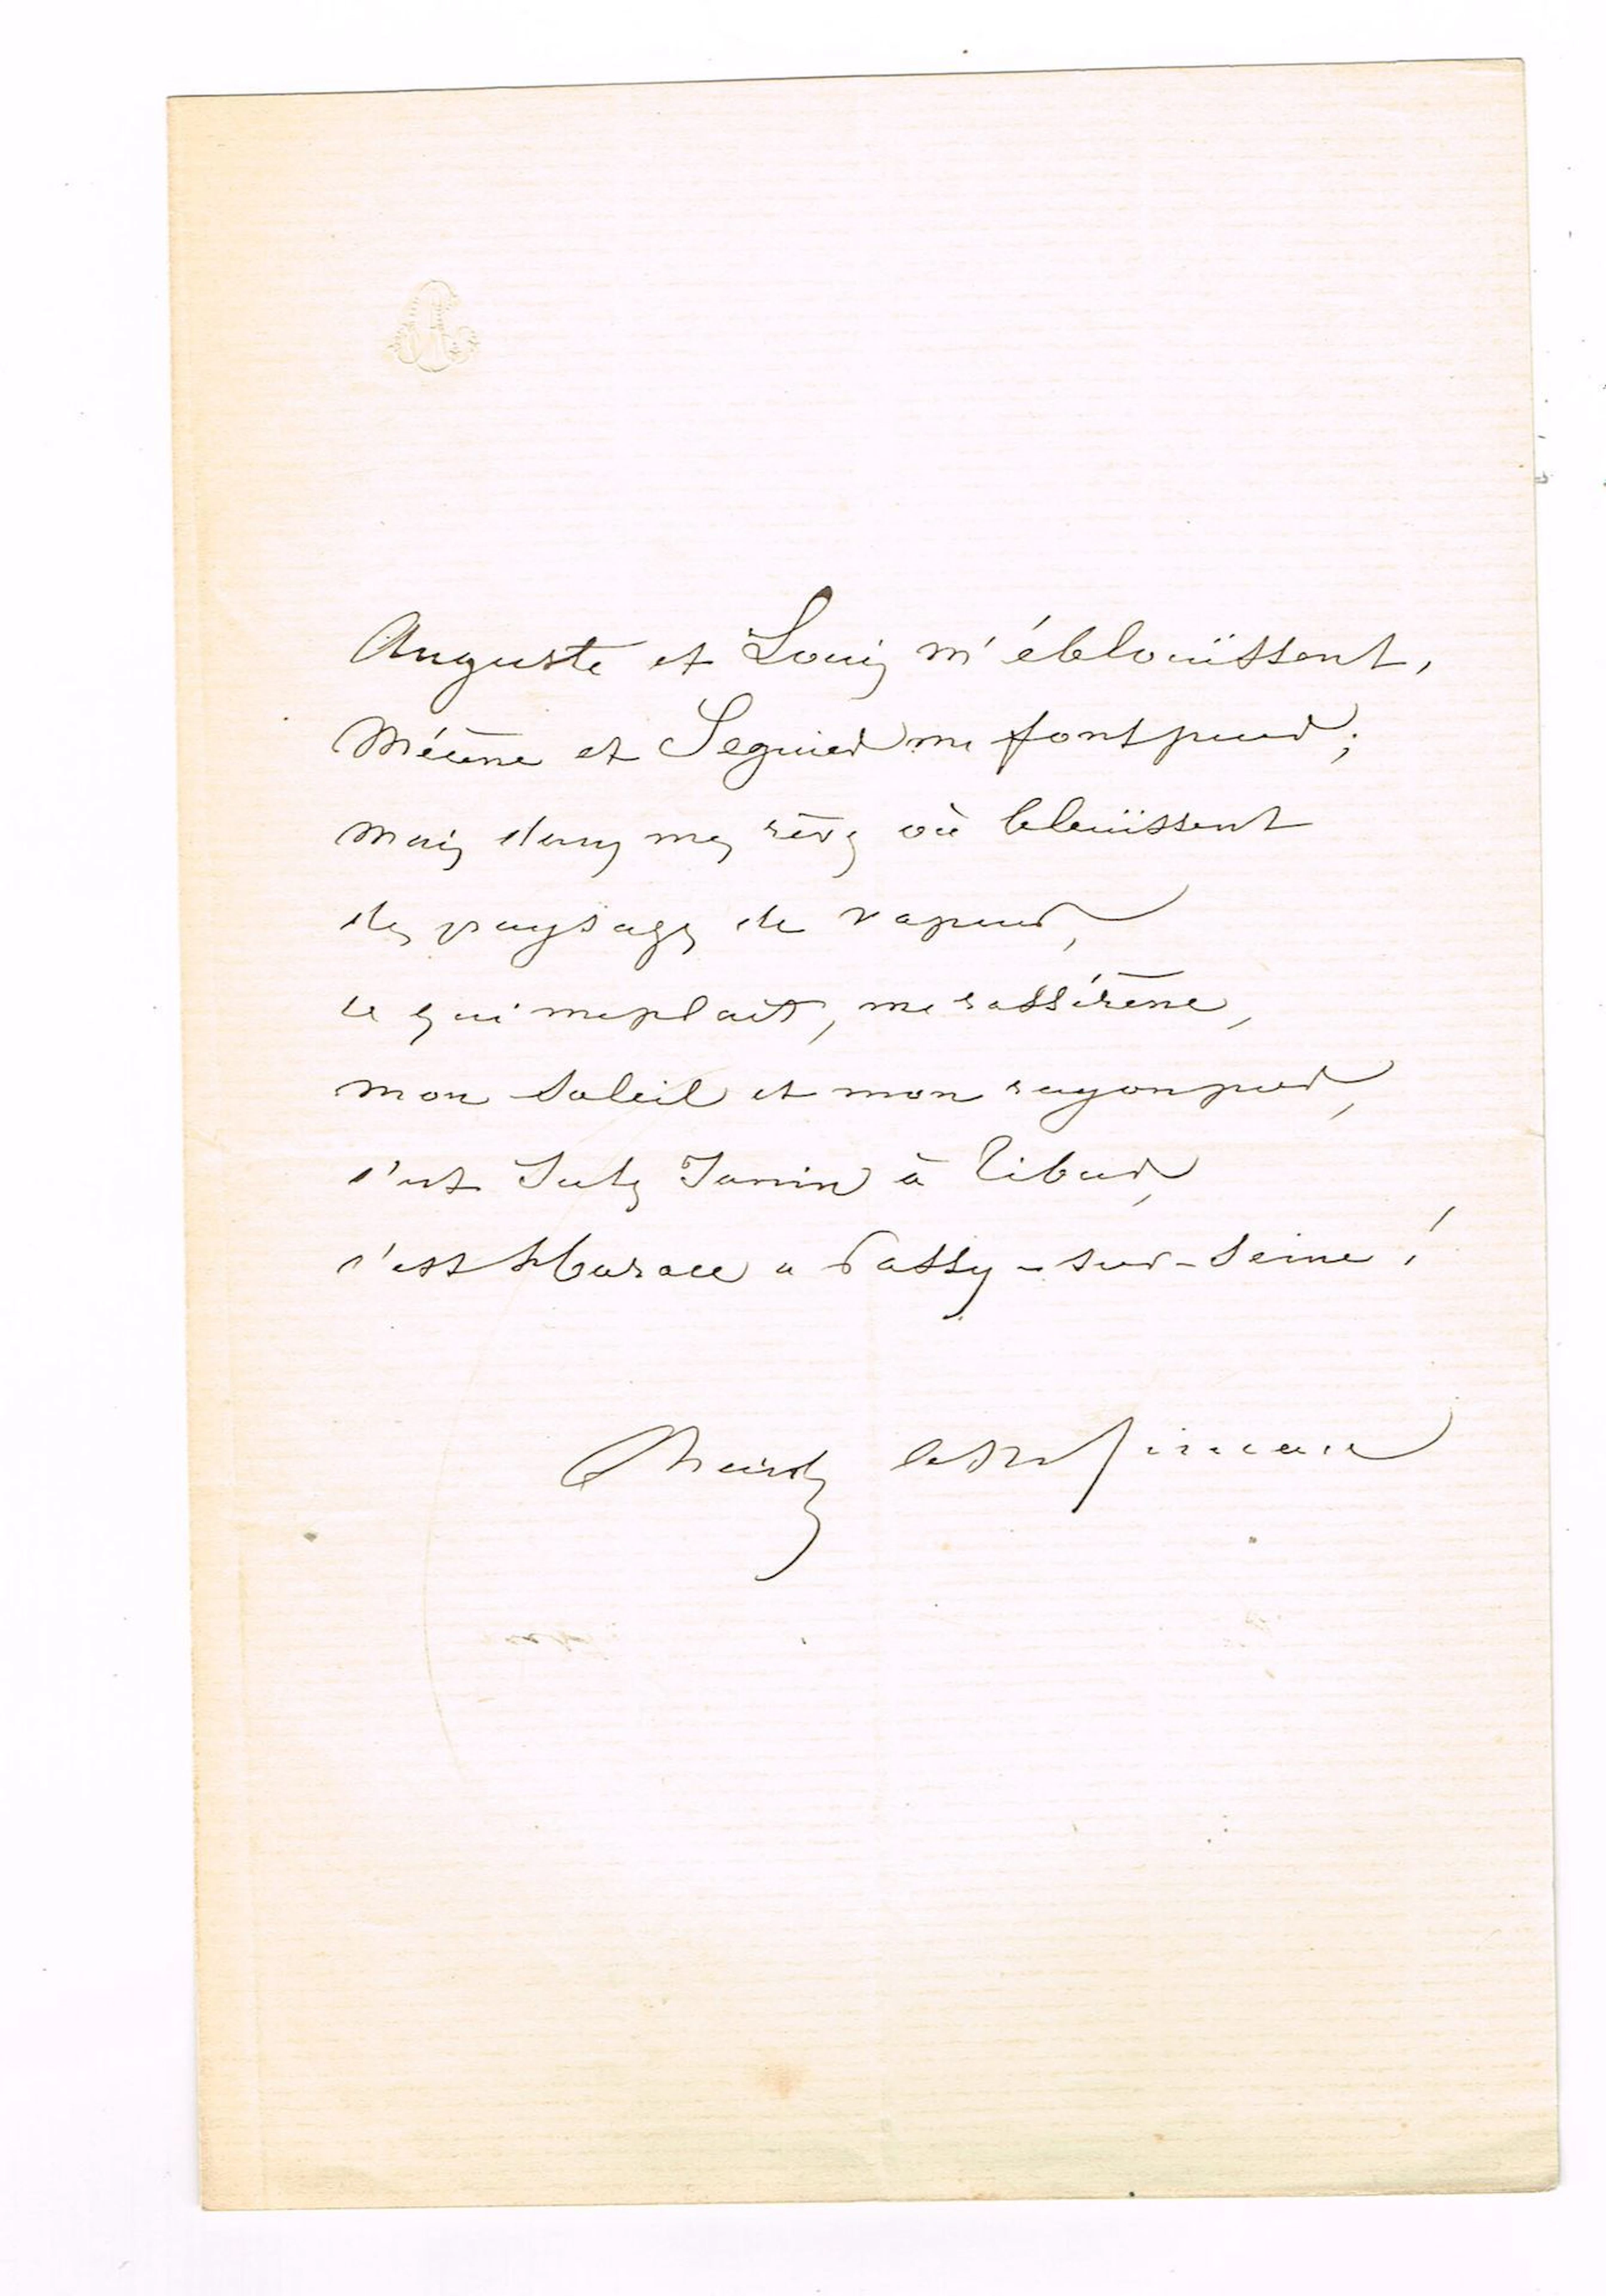 Auguste et Louis m'éblouïssent,
Mécène et Seguier me font peur ;
mais dans mes rêves où bleuïssent
des paysages de vapeur,
ce qui me plait, me rassérène,
mon soleil et mon rayon pur,
c'est Jules Janin à Tibur,
c'est Horace a Passy-sur-Seine !
Charles